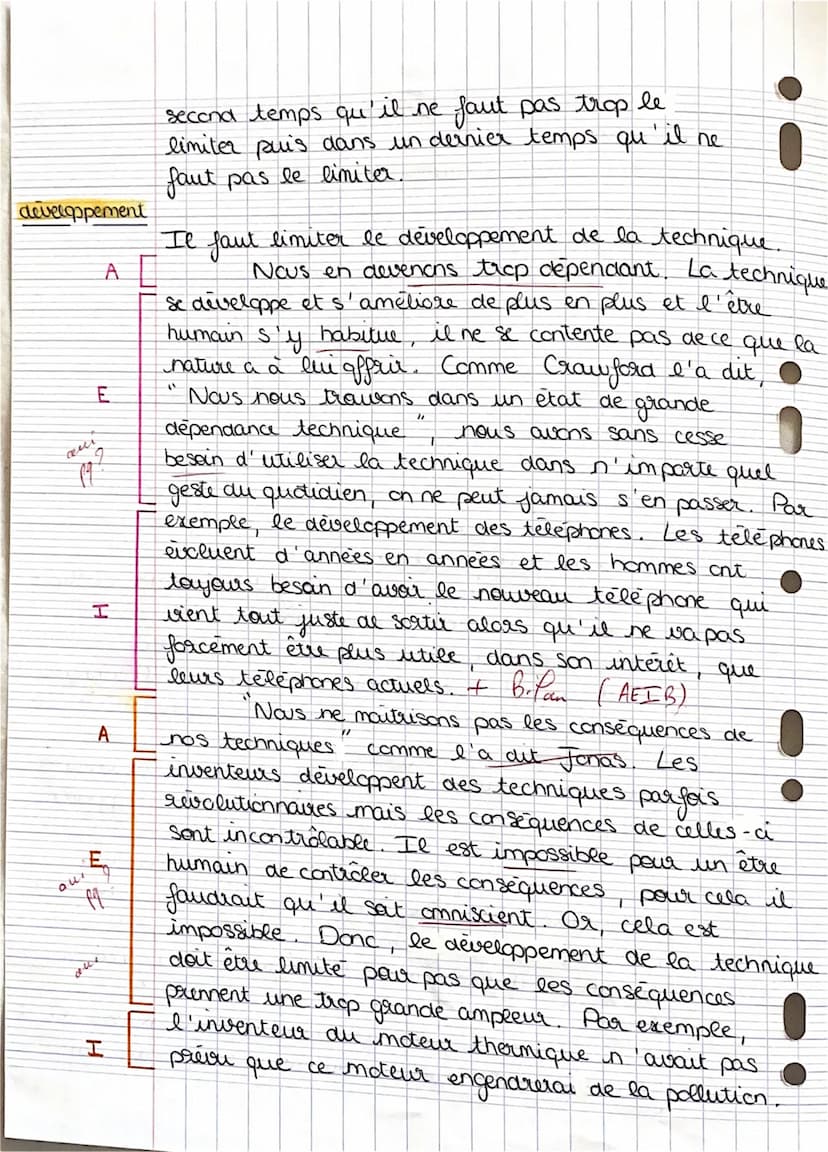 second temps qu'il ne faut pas trop le
limiter puis dans un dernier temps qu'il ne
faut pas le limiter.
développement
Il faut limiter le développement de la technique.
A
Nous en devenons trop dépendant. La technique
se développe et s'améliore de plus en plus et l'être
humain s'y habitue, il ne se contente pas de ce que la
nature a à lui offrir. Comme Crawford l'a dit,
E
"Nous nous trouvons dans un état de grande
dépendance technique", nous avons sans cesse
oui
pq?
besoin d'utiliser la technique dans n'importe quel
geste du quotidien, on ne peut jamais s'en passer. Par
exemple, le développement des téléphones. Les téléphones
évoluent d'années en années et les hommes ont
toujours besoin d'avoir le nouveau téléphone qui
I
vient tout juste de sortir alors qu'il ne va pas
forcément être plus utile, dans son intérêt, que
leurs téléphones actuels. + Bilan (AEIB)
A
"Nous ne maîtrisons pas les conséquences de
nos techniques" comme l'a dit Jonas. Les
inventeurs développent des techniques parfois
révolutionnaires mais les conséquences de celles-ci
sont incontrôlable. Il est impossible pour un être
E
oui
pq?
humain de contrôler les conséquences, pour cela il
faudrait qu'il soit omniscient. Or, cela est
impossible. Donc, le développement de la technique
oui
doit être limité pour pas que les conséquences
prennent une trop grande ampleur. Par exemple,
I
l'inventeur du moteur thermique n'avait pas
prévu que ce moteur engendrerai de la pollution.